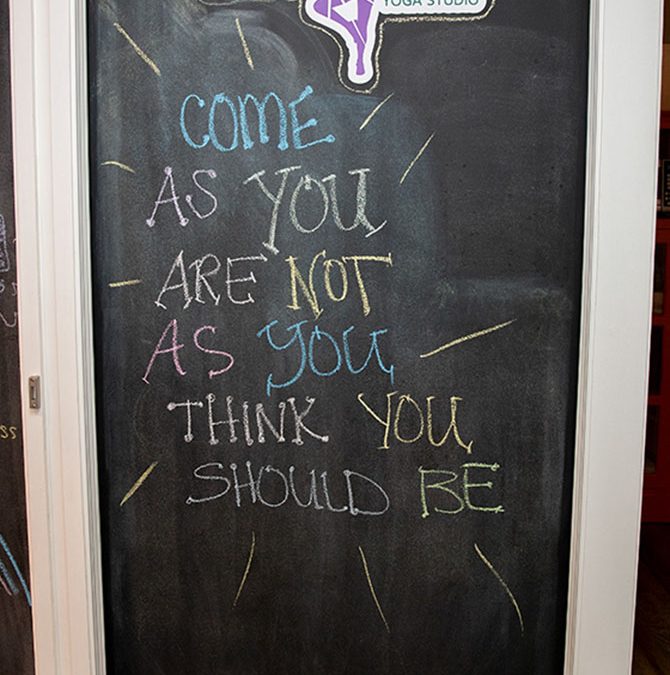 YOGA STUDIO
COME
AS YOU
ARE NOT
AS YOU
THINK YOU
SHOULD BE
ss